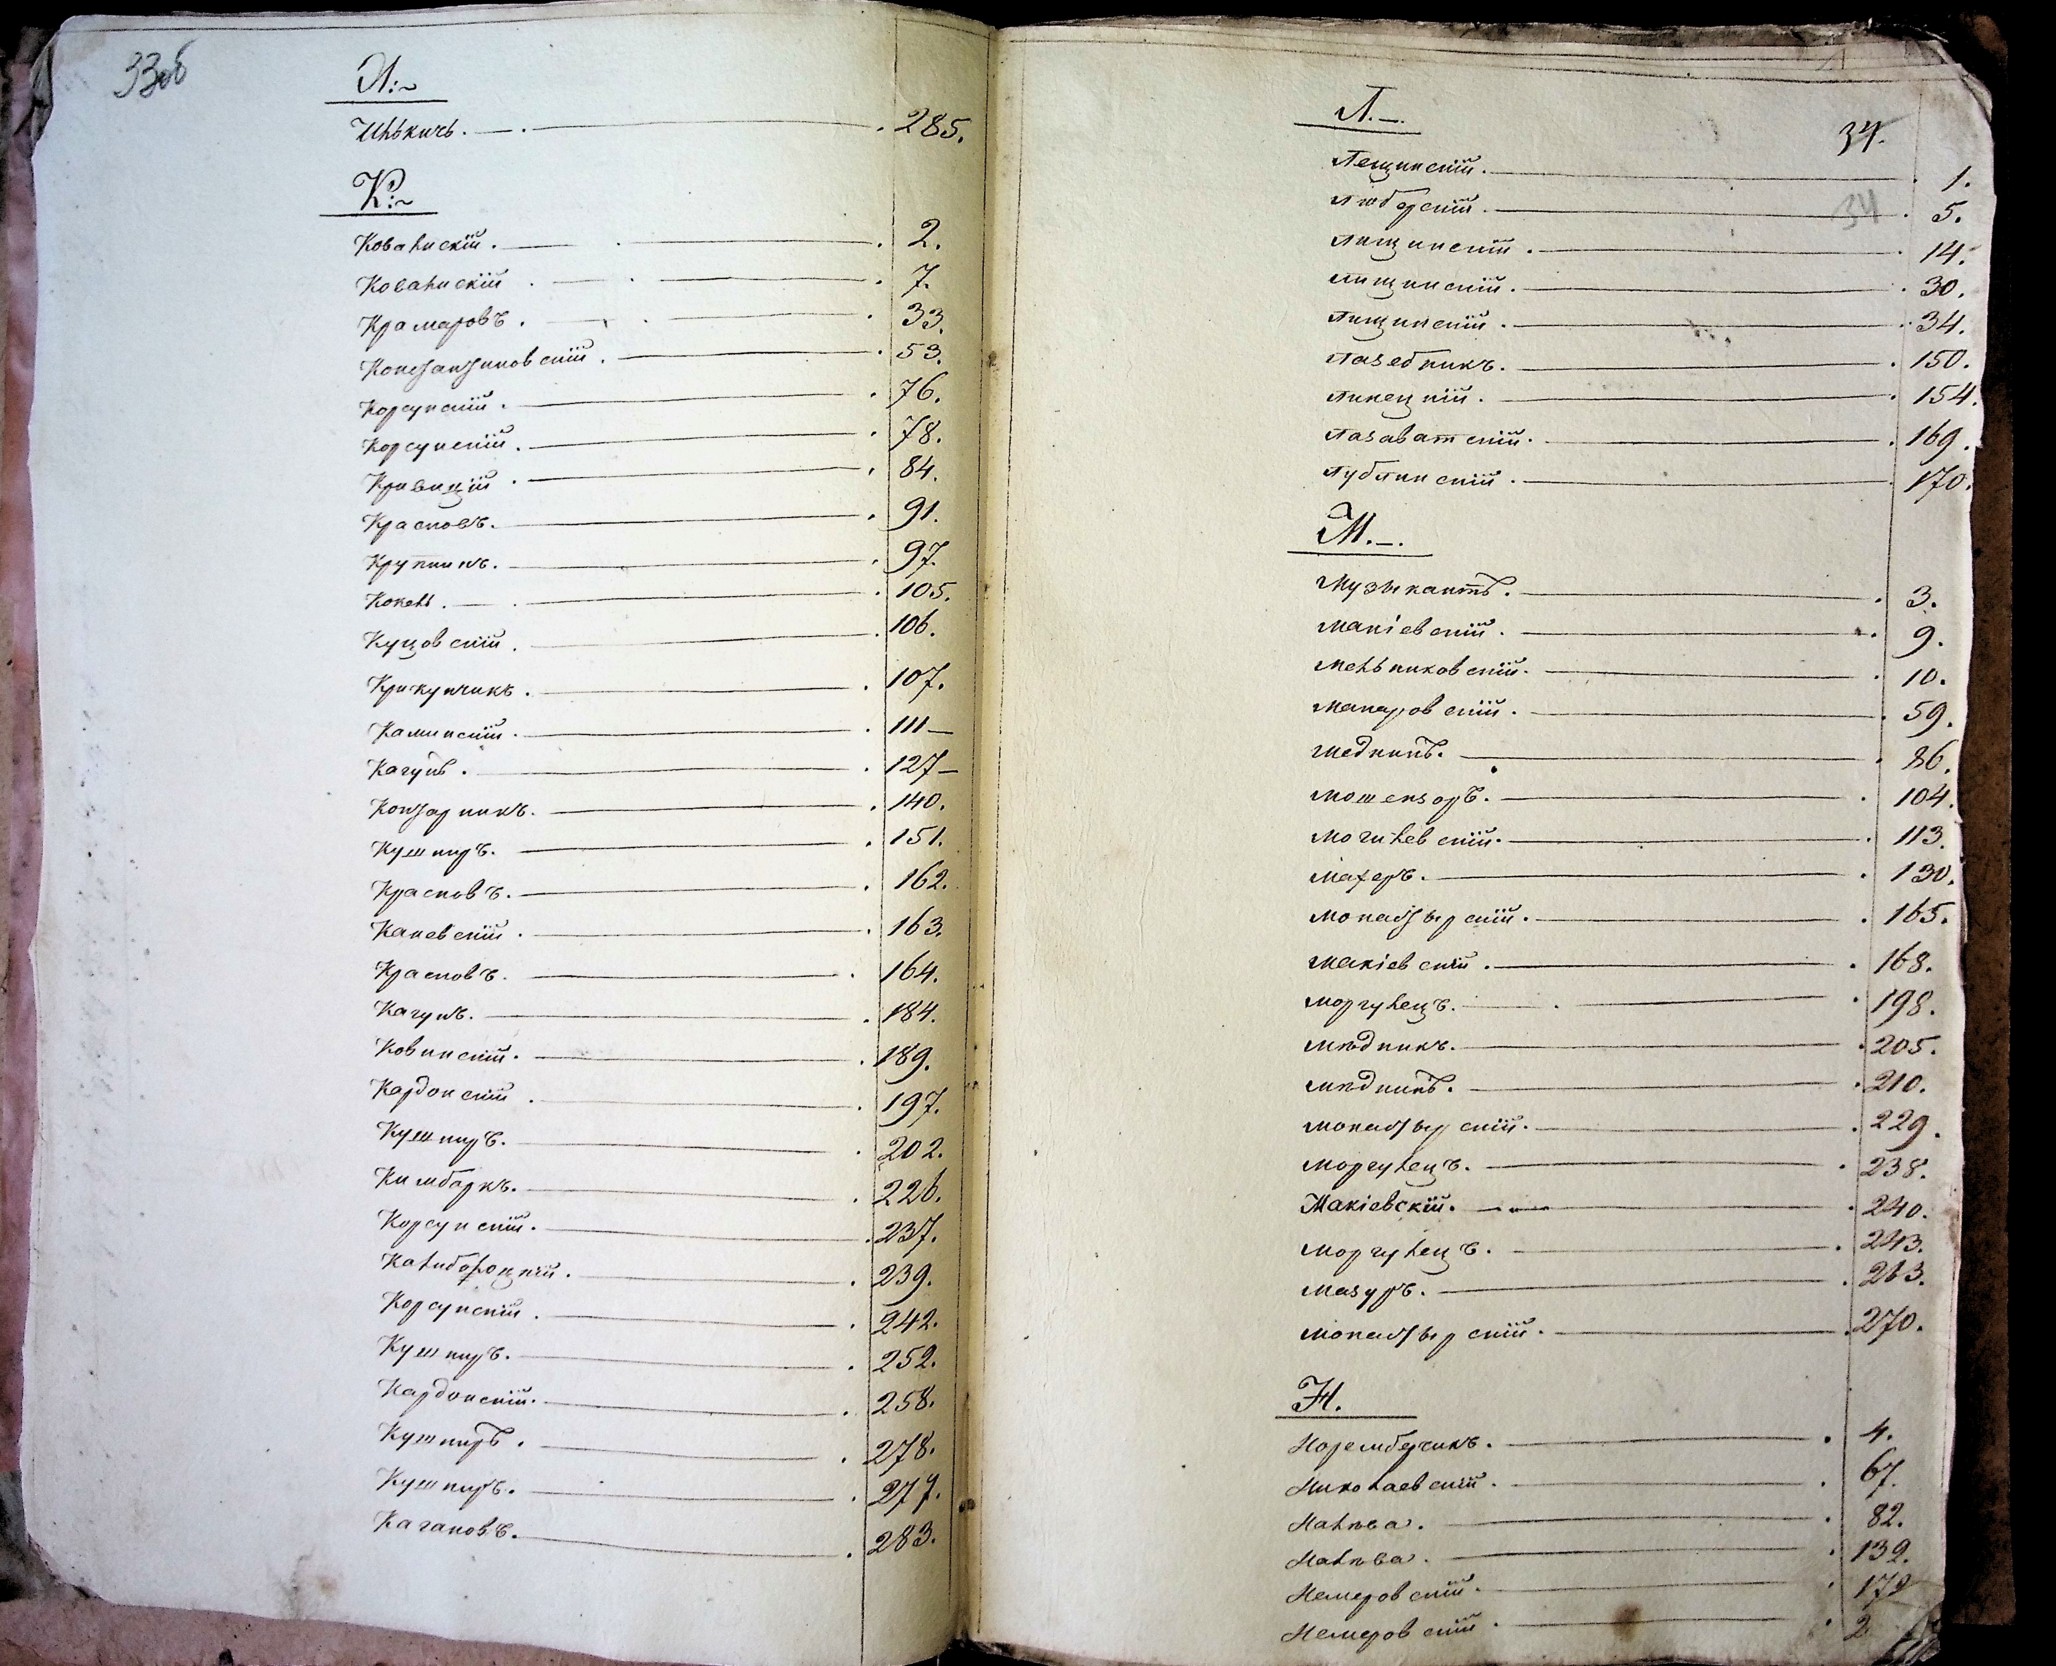 33об
И:~
Илькичъ. 285.
К:~
Ковальскій. 2.
Ковальскій 7.
Крамаровъ. 33.
Константиновскій. 53.
Корсунскій. 76.
Корсунскій. 78.
Кривицкій 84.
Красновъ. 91.
Крупникъ. 97.
Кокель. 105.
Куцовскій. 106.
Крикунчикъ. 107.
Каминскій. 111
Кагунъ. 127
Контарникъ. 140.
Кушниръ. 151.
Красновъ. 162.
Каневскій. 163.
Красновъ. 164.
Кагунъ. 184.
Ковинскій. 189.
Кардонскій. 197.
Кушниръ. 202.
Кимбаркъ. 226.
Корсунскій. 237.
Калиболоцкій. 239.
Корсунскій. 242.
Кушниръ. 252.
Кардонскій. 258.
Кушниръ. 278.
Кушниръ. 277.
Кагановъ. 283.
Л.
34.
34
Лещинскій. 1.
Люборскій. 5.
Лищинскій. 14.
Лищинскій. 30.
Лищинскій. 34.
Лазебникъ. 150.
Липецкій. 154.
Лазаватскій. 169.
Лублинскій. 170.
М.
Музыкантъ. 3.
Макіевскій. 9.
Мельниковскій. 10.
Макаровскій. 59.
Медникъ. 86.
Мошензоръ. 104.
Могилевскій. 113.
Махеръ. 130.
Монастырскій. 165.
Макіевскій. 168.
Моргулецъ. 198.
Мѣдникъ. 205.
Мѣдникъ. 210.
Монастырскій. 229.
Моргулецъ. 238.
Макіевскій. 240.
Моргулецъ. 243.
Мазуръ. 263.
Монастырскій. 270.
Н.
Норемберчикъ. 4.
Николаевскій. 67.
Налѣва. 82.
Налѣва. 139.
Немеровскій. 172
Немеровскій. 2